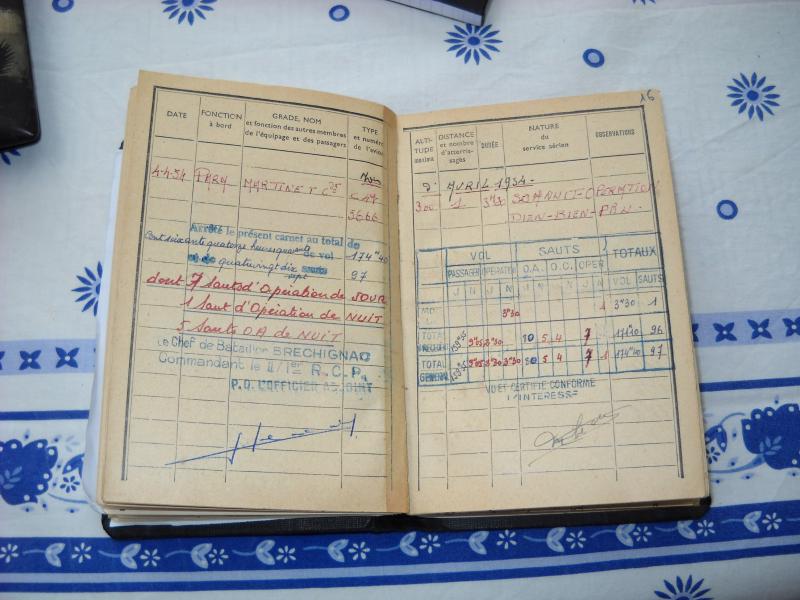 DATE
FONCTION
à bord
GRADE, NOM
et fonction des autres membres
de l'équipage et des passagers
TYPE
et numéro
de l'avion
4-4-54 PARA MARTINET
5666
Arrêté le présent carnet au total de
Cent soixante quatorze heures quarante de vol 174h40
quatrevingt dix sept sauts 97
dont 7 sauts d'Opération de JOUR
1 saut d'Opération de NUIT
5 sauts O.A de NUIT
Le Chef de Bataillon BRECHIGNAC
Commandant le II/1er R.C.P.
P.O. L'OFFICIER ADJOINT
16
ALTI-
TUDE
maxima
DISTANCE
et nombre
d'atterris-
sages
DURÉE
NATURE
du
service aérien
OBSERVATIONS
AVRIL 1954-
300 1 3h30 SAUT NUIT-OPERATION
DIEN-BIEN-PHU
VOL SAUTS TOTAUX
PASSAGER OPERATION O.A. O.C. OPER VOL SAUTS
J N J N J N J N J N
3h30 1 3h30 1
TOTAL 5 4 7 171h10 96
TOTAL
GENERAL 5 4 7 1 174h40 97
VU ET CERTIFIE CONFORME
L'INTERESSE